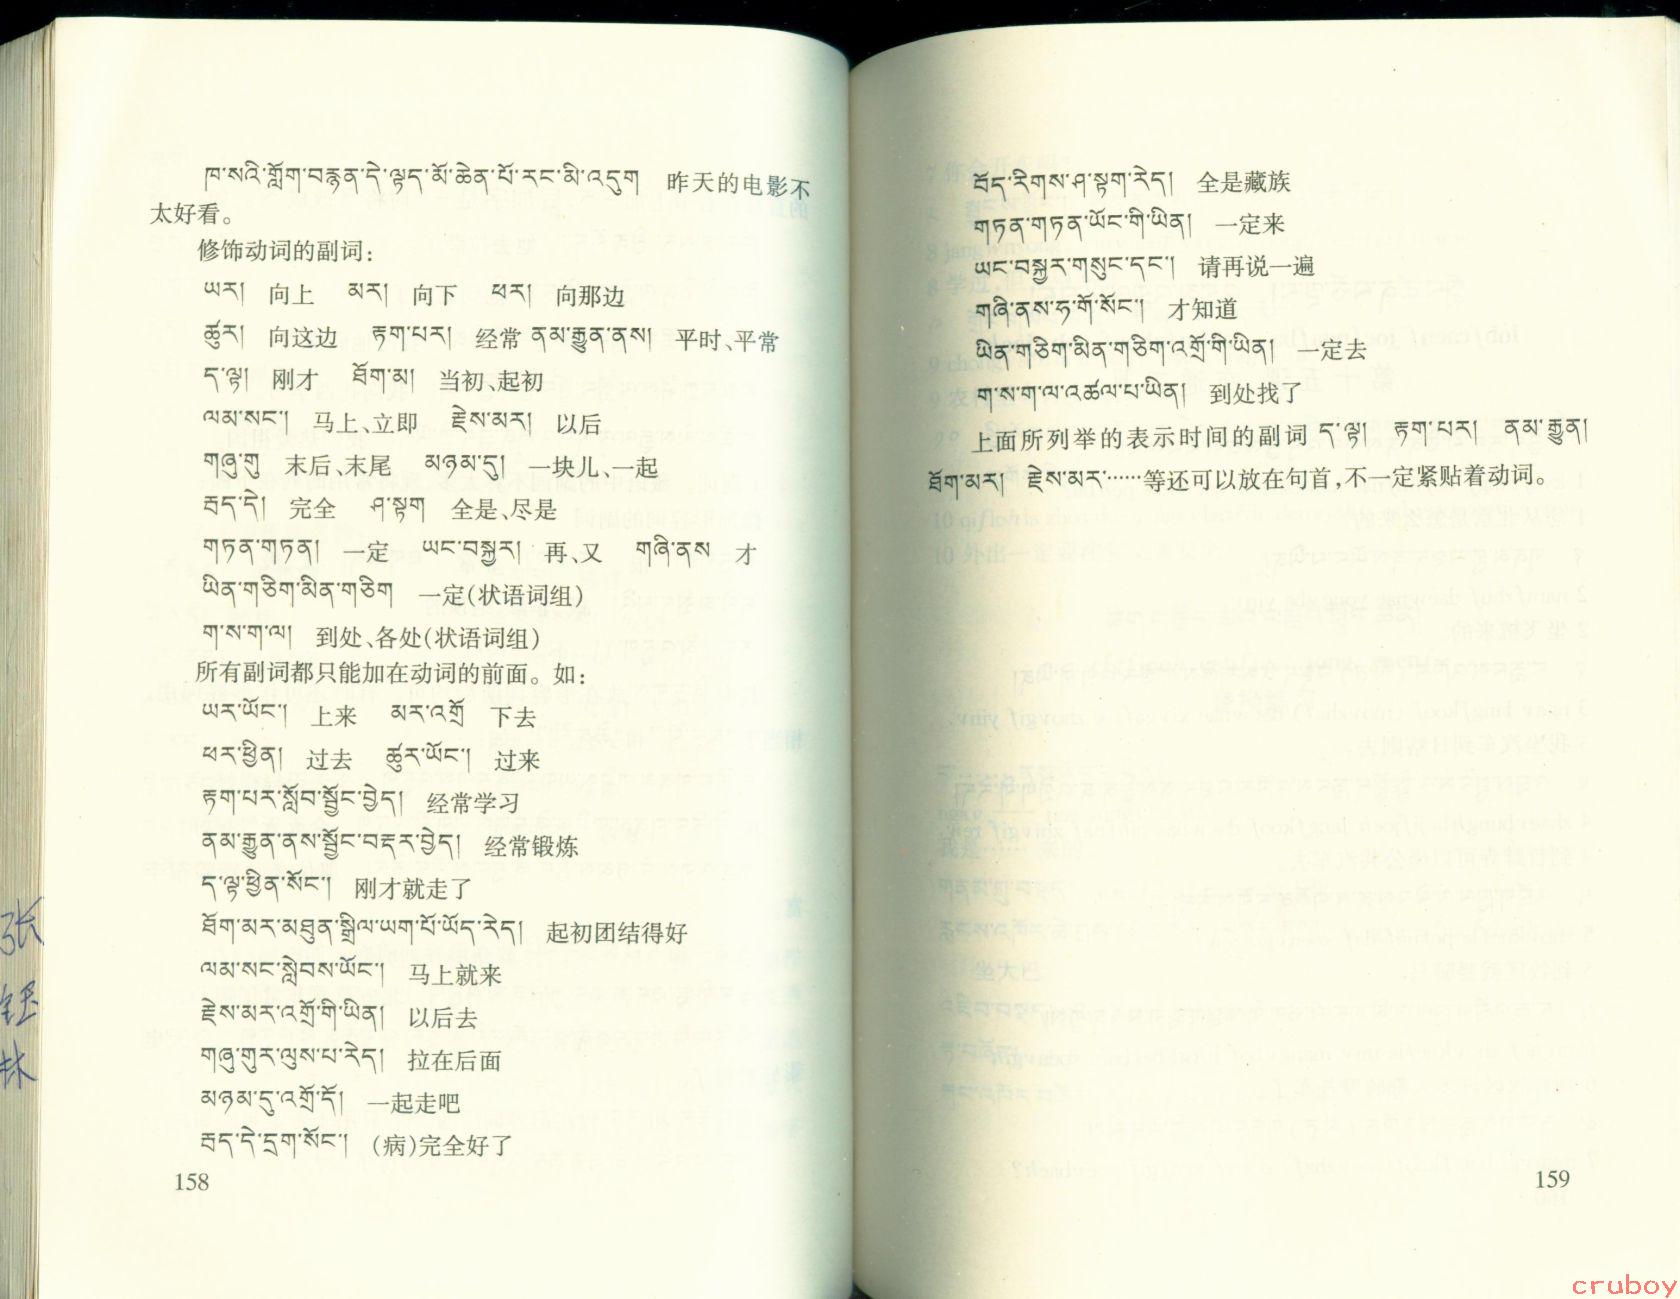 ཁ་སའི་གློག་བརྙན་དེ་ལྟད་མོ་ཆེན་པོ་རང་མི་འདུག 昨天的电影不
太好看。
修饰动词的副词：
ཡར། 向上 མར། 向下 ཕར། 向那边
ཚུར། 向这边 རྟག་པར། 经常 ནམ་རྒྱུན་ནས། 平时、平常
ད་ལྟ། 刚才 ཐོག་མ། 当初、起初
ལམ་སང་། 马上、立即 རྗེས་མར། 以后
གཞུ་གུ 末后、末尾 མཉམ་དུ། 一块儿、一起
རྦད་དེ། 完全 ཤ་སྟག 全是、尽是
གཏན་གཏན། 一定 ཡང་བསྐྱར། 再、又 གཞི་ནས 才
ཡིན་གཅིག་མིན་གཅིག 一定(状语词组)
ག་ས་ག་ལ། 到处、各处(状语词组)
所有副词都只能加在动词的前面。如：
ཡར་ཡོང་། 上来 མར་འགྲོ 下去
ཕར་ཕྱིན། 过去 ཚུར་ཡོང་། 过来
རྟག་པར་སློབ་སྦྱོང་བྱེད། 经常学习
ནམ་རྒྱུན་ནས་སྦྱོང་བརྡར་བྱེད། 经常锻炼
ད་ལྟ་ཕྱིན་སོང་། 刚才就走了
ཐོག་མར་མཐུན་སྒྲིལ་ཡག་པོ་ཡོད་རེད། 起初团结得好
ལམ་སང་སླེབས་ཡོང་། 马上就来
རྗེས་མར་འགྲོ་གི་ཡིན། 以后去
གཞུ་གུར་ལུས་པ་རེད། 拉在后面
མཉམ་དུ་འགྲོ་དོ། 一起走吧
རྦད་དེ་དྲག་སོང་། (病)完全好了
158
བོད་རིགས་ཤ་སྟག་རེད། 全是藏族
གཏན་གཏན་ཡོང་གི་ཡིན། 一定来
ཡང་བསྐྱར་གསུང་དང་། 请再说一遍
གཞི་ནས་ཧ་གོ་སོང་། 才知道
ཡིན་གཅིག་མིན་གཅིག་འགྲོ་གི་ཡིན། 一定去
ག་ས་ག་ལ་འཚལ་པ་ཡིན། 到处找了
上面所列举的表示时间的副词 ད་ལྟ། རྟག་པར། ནམ་རྒྱུན།
ཐོག་མར། རྗེས་མར་……等还可以放在句首,不一定紧贴着动词。
159
张
钰
林
cruboy